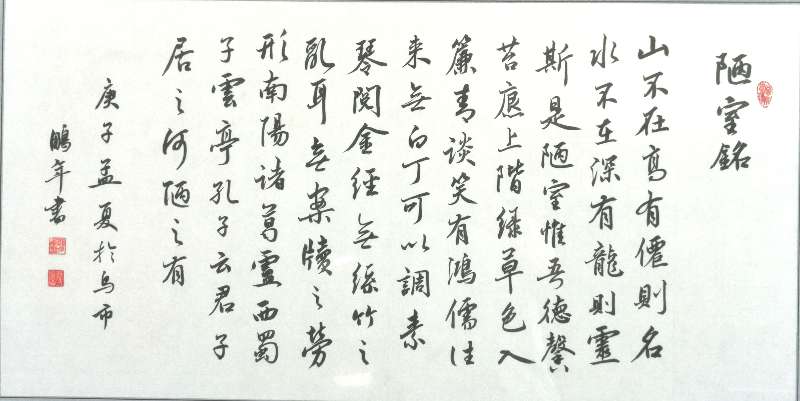 陋室銘
山不在高有僊則名
水不在深有龍則靈
斯是陋室惟吾德馨
苔痕上階綠草色入
簾青談笑有鴻儒往
来無白丁可以調素
琴閱金經無絲竹之
亂耳無案牘之勞
形南陽諸葛靈西蜀
子雲亭孔子云君子
居之何陋之有
庚子孟夏於烏市
鵬年書